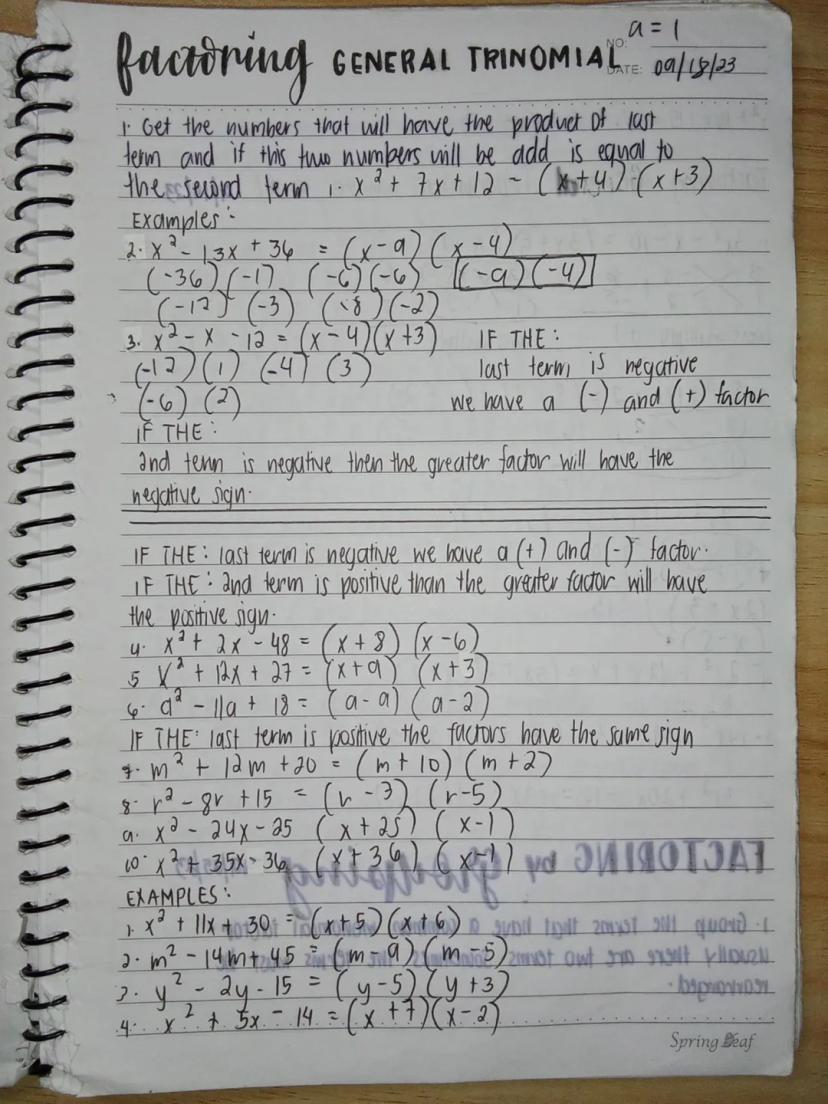 factoring GENERAL TRINOMIAL a = 1
NO:
DATE: 09/18/23
1. Get the numbers that will have the product of last
term and if this two numbers will be add is equal to
the second term 1. x² + 7x + 12 - (x+4)·(x+3)
Examples:
2. x² - 13x + 36 = (x-9)(x-4)
(-36)(-1) (-6)(-6) (-9)(-4)
(-12) (-3) (-8)(-2)
3. x² - x - 12 = (x-4)(x+3) IF THE:
(-12)(1) (-4)(3) last term, is negative
(-6)(2) we have a (-) and (+) factor
IF THE:
2nd term is negative then the greater factor will have the
negative sign.
IF THE: last term is negative we have a (+) and (-) factor.
IF THE: 2nd term is positive than the greater factor will have
the positive sign.
4. x² + 2x - 48 = (x+8) (x-6)
5 x² + 12x + 27 = (x+9) (x+3)
6. a² - 11a + 18 = (a-9) (a-2)
IF THE: last term is positive the factors have the same sign
7. m² + 12m + 20 = (m+10) (m+2)
8. r² - 8r + 15 = (r-3) (r-5)
9. x² - 24x - 25 (x+25) (x-1)
10. x² + 35x - 36 (x+36) (x-1)
EXAMPLES:
1. x² + 11x + 30 = (x+5)(x+6)
2. m² - 14m + 45 = (m-9) (m-5)
3. y² - 2y - 15 = (y-5)(y+3)
4. x² + 5x - 14 = (x+7)(x-2)
Spring Leaf